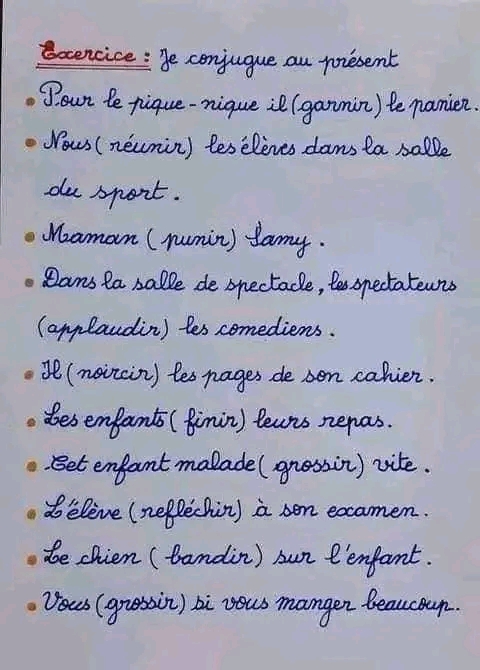 Exercice : Je conjugue au présent
• Pour le pique-nique il (garnir) le panier.
• Nous (réunir) les élèves dans la salle
du sport.
• Maman (punir) Samy.
• Dans la salle de spectacle, les spectateurs
(applaudir) les comediens.
• Il (noircir) les pages de son cahier.
• Les enfants (finir) leurs repas.
• Cet enfant malade (grossir) vite.
• L'élève (refléchir) à son examen.
• Le chien (bandir) sur l'enfant.
• Vous (grossir) si vous manger beaucoup.